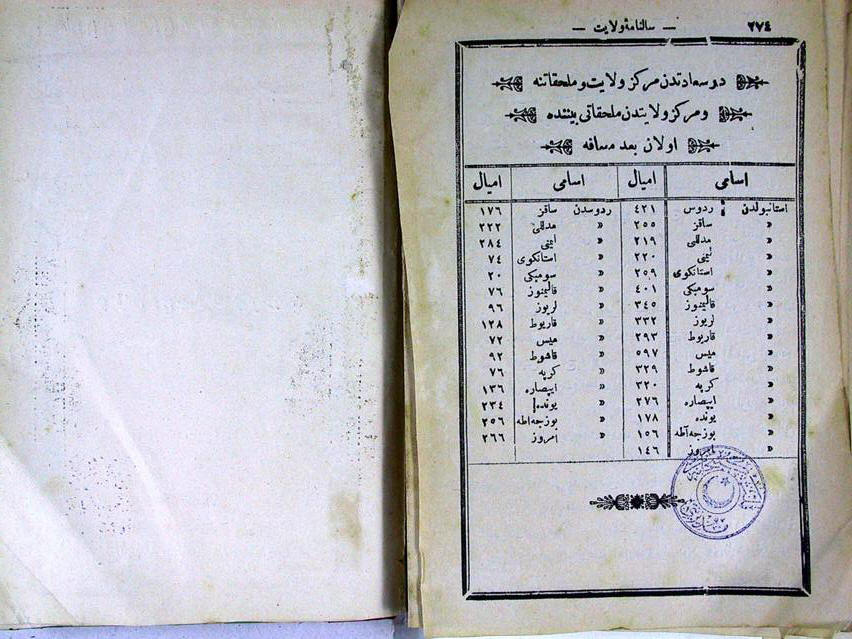 ٢٧٤ — سالنامهٔ ولایت —
در سعادتدن مرکز ولایت و ملحقاتنه
و مرکز ولایتدن ملحقاتی بیننده
اولان بعد مسافه
اسامی امیال اسامی امیال
استانبولدن ردوس ٤٢١ ردوسدن ساقز ١٧٦
« ساقز ٢٥٥ « مدللی ٢٢٢
« مدللی ٢١٩ « لیمنی ٢٨٤
« لیمنی ٢٢٠ « استانکوی ٧٤
« استانکوی ٢٥٩ « سومبکی ٢٠
« سومبکی ٤٠١ « قالیمنوز ٧٦
« قالیمنوز ٣٤٥ « لریوز ٩٦
« لریوز ٣٣٢ « قاریوط ١٢٨
« قاریوط ٢٩٣ « میس ٧٢
« میس ٥٩٧ « قاشوط ٩٢
« قاشوط ٣٢٩ « کرپه ٧٦
« کرپه ٣٢٠ « ایپصاره ١٣٦
« ایپصاره ٢٧٦ « یونده ٢٣٤
« یونده ١٧٨ « بوزجه اطه ٢٥٦
« بوزجه آطه ١٥٦ « امروز ٢٦٦
« امروز ١٤٦